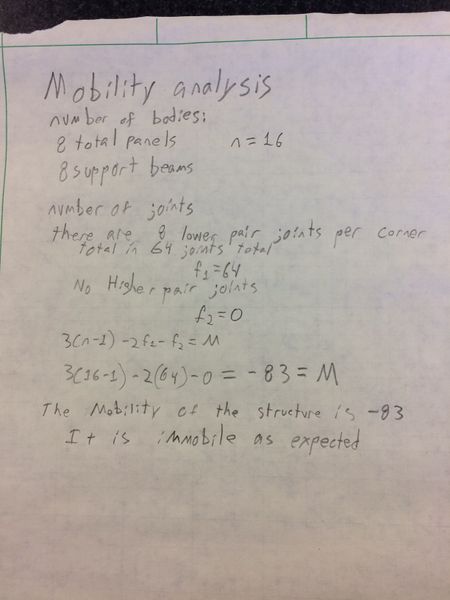 Mobility analysis
number of bodies:
8 total panels n=16
8 support beams
number of joints
there are 8 lower pair joints per corner
total in 64 joints total
f₁=64
No Higher pair joints
f₂=0
3(n-1)-2f₁-f₂=M
3(16-1)-2(64)-0=-83=M
The Mobility of the structure is -83
It is immobile as expected